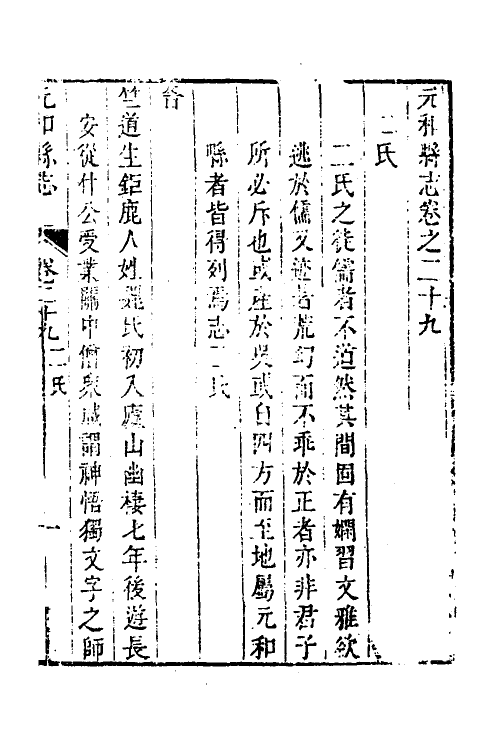 元和縣志卷之二十九
二氏
二氏之徒儒者不道然其間固有嫻習文雅欲
逃於儒又迹若荒幻而不乖於正者亦非君子
所必斥也或產於吳或自四方而至地屬元和
縣者皆得列焉志二氏
晉
竺道生鉅鹿人姓魏氏初入廬山幽棲七年後遊長
安從什公受業關中僧衆咸謂神悟獨文字之師
元和縣志 卷二十九 二氏 一